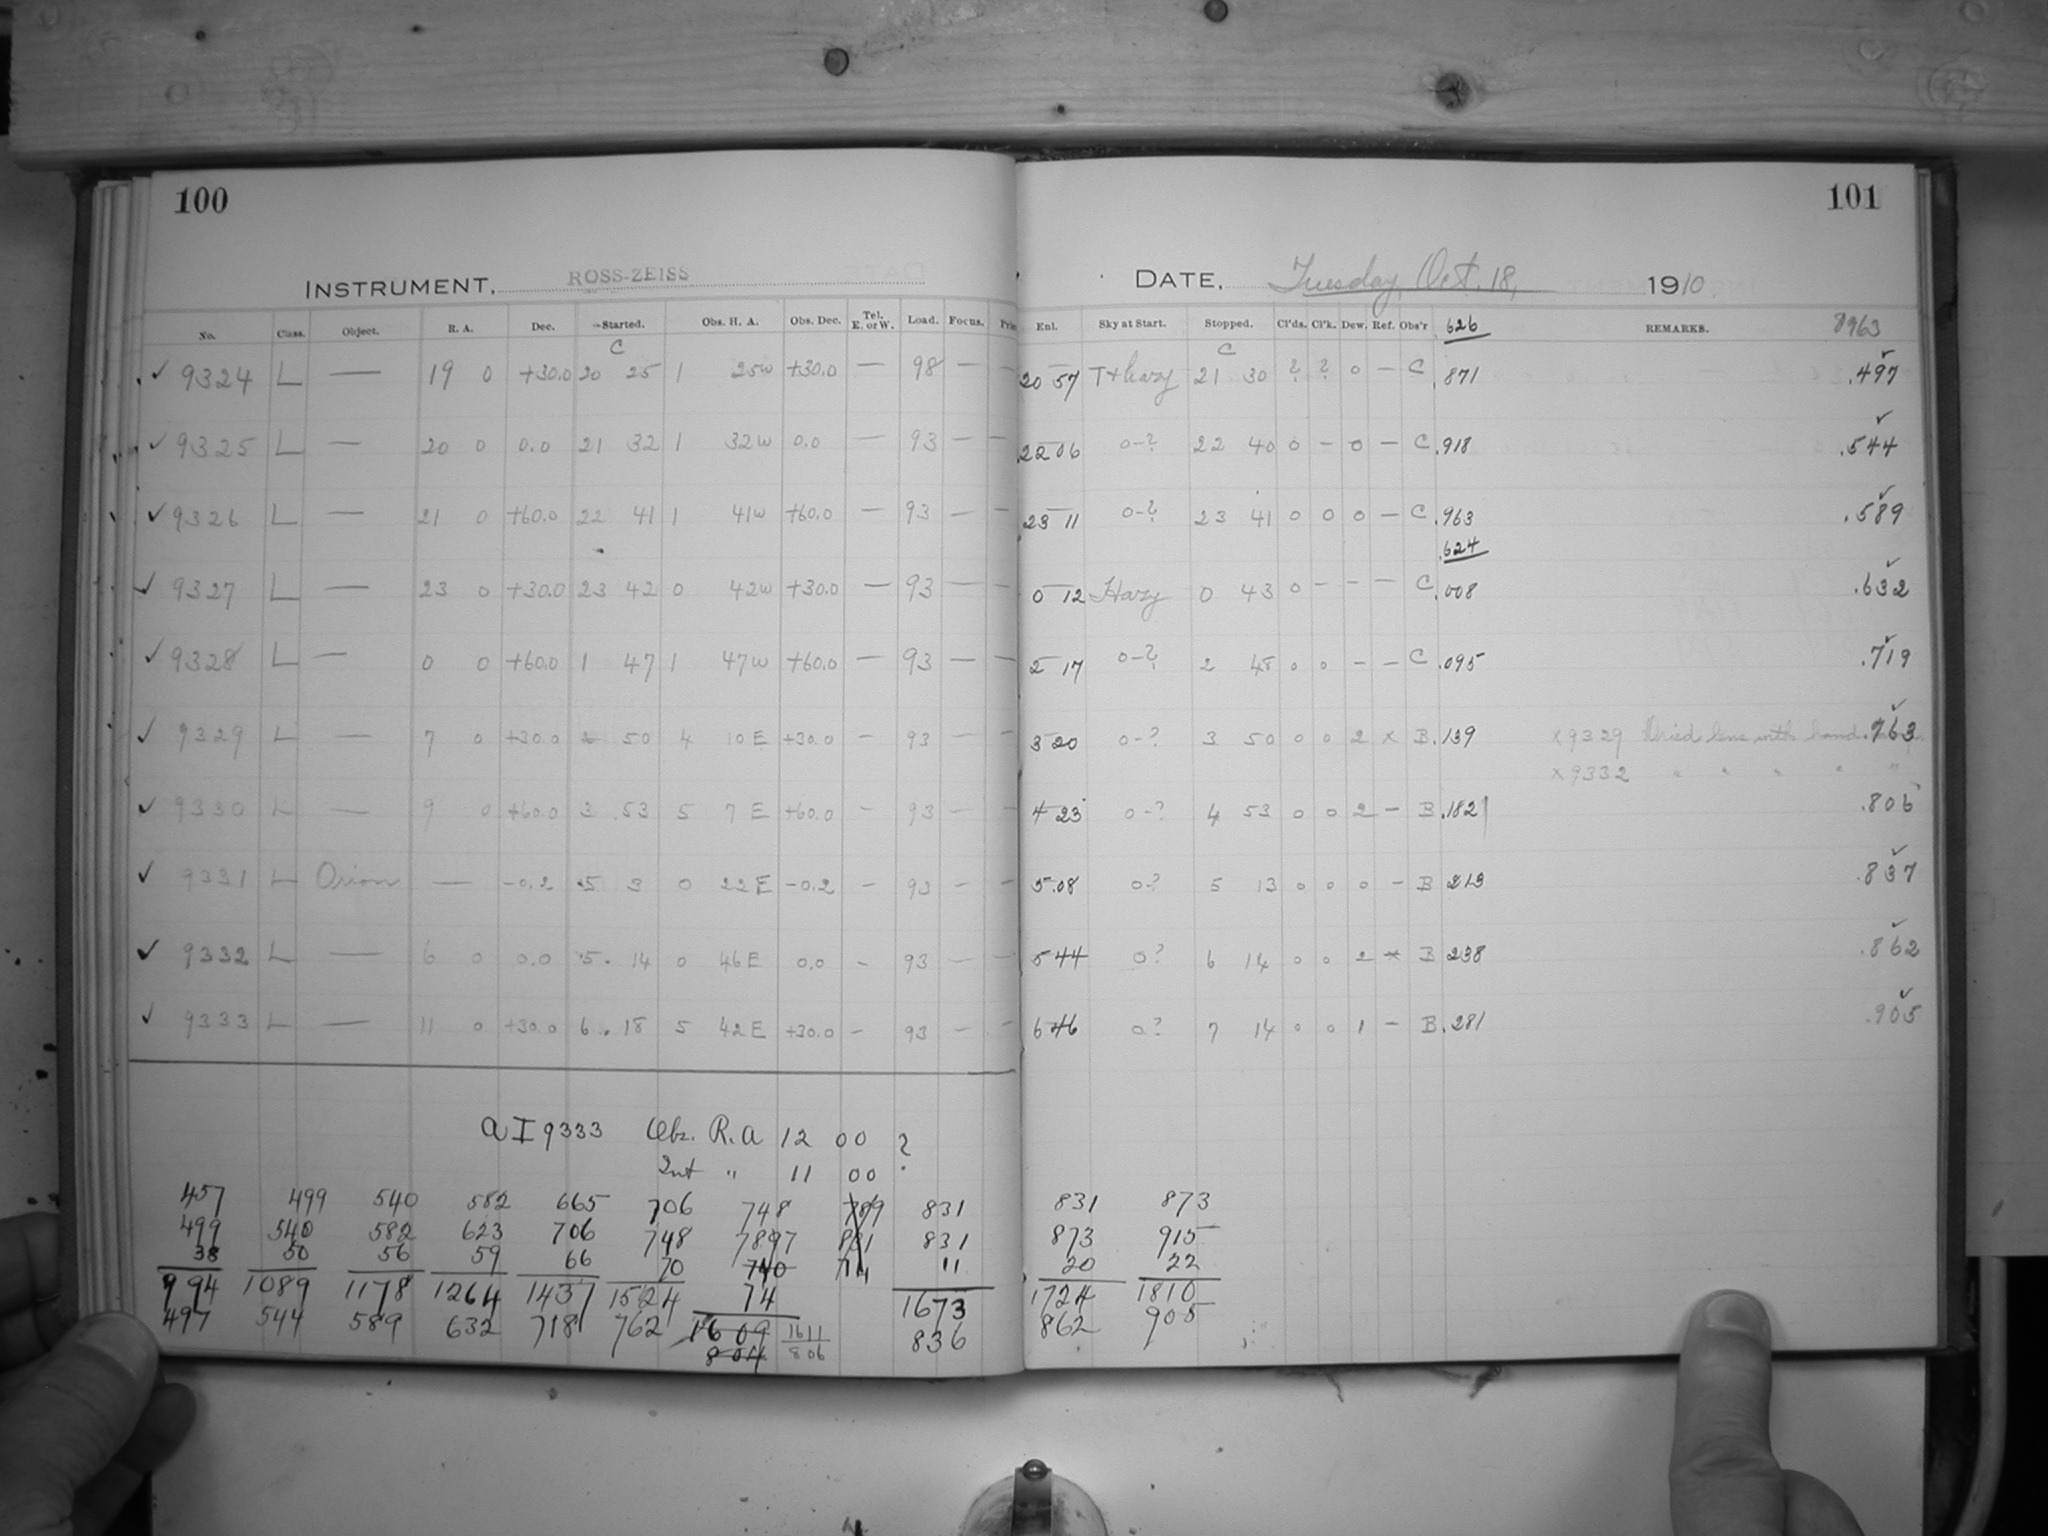 100
INSTRUMENT, ROSS-ZEISS
No. Class. Object. R. A. Dec. Started. Obs. H. A. Obs. Dec. Tel. E. or W. Load. Focus.
C
✓ 9324 L — 19 0 +30.0 20 25 1 25w +30.0 — 98 — —
✓ 9325 L — 20 0 0.0 21 32 1 32w 0.0 — 93 — —
✓ 9326 L — 21 0 +60.0 22 41 1 41w +60.0 — 93 — —
✓ 9327 L — 23 0 +30.0 23 42 0 42w +30.0 — 93 — —
✓ 9328 L — 0 0 +60.0 1 47 1 47w +60.0 — 93 — —
✓ 9329 L — 7 0 +30.0 2 50 4 10 E +30.0 — 93 — —
✓ 9330 L — 9 0 +60.0 3 53 5 7 E +60.0 — 93 — —
✓ 9331 L Orion — -0.2 5 3 0 22 E -0.2 — 93 — —
✓ 9332 L — 6 0 0.0 5 14 0 46 E 0.0 — 93 — —
✓ 9333 L — 11 0 +30.0 6 18 5 42 E +30.0 — 93 — —
a I 9333 Obs. R.A 12 00 ?
Int " 11 00
457 499 540 582 665 706 748 789 831
499 540 582 623 706 748 7897 831 831
38 50 56 59 66 70 740 714 11
994 1089 1178 1264 1437 1524 74 1673
497 544 589 632 718 762 1609 1611 836
804 806
101
DATE, Tuesday, Oct. 18, 1910
Enl. Sky at Start. Stopped. Cl'ds. Cl'k. Dew. Ref. Obs'r 626 REMARKS. 8963
C
20 57 T+hazy 21 30 ? ? 0 — C .871 .497
22 06 0-? 22 40 0 — 0 — C .918 .544
23 11 0-? 23 41 0 0 0 — C .963 .589
.624
0 12 Hazy 0 43 0 — — — C .008 .632
2 17 0-? 2 48 0 0 — — C .095 .719
3 20 0-? 3 50 0 0 2 x B .139 x 9329 Dried lens with hand .763
x 9332 " " " " "
4 23 0-? 4 53 0 0 2 — B .182 .806
5.08 0-? 5 13 0 0 0 — B 213 .837
5 44 0? 6 14 0 0 2 x B 238 .862
6 46 0? 7 14 0 0 1 — B .281 .905
831 873
873 915
20 22
1724 1810
862 905